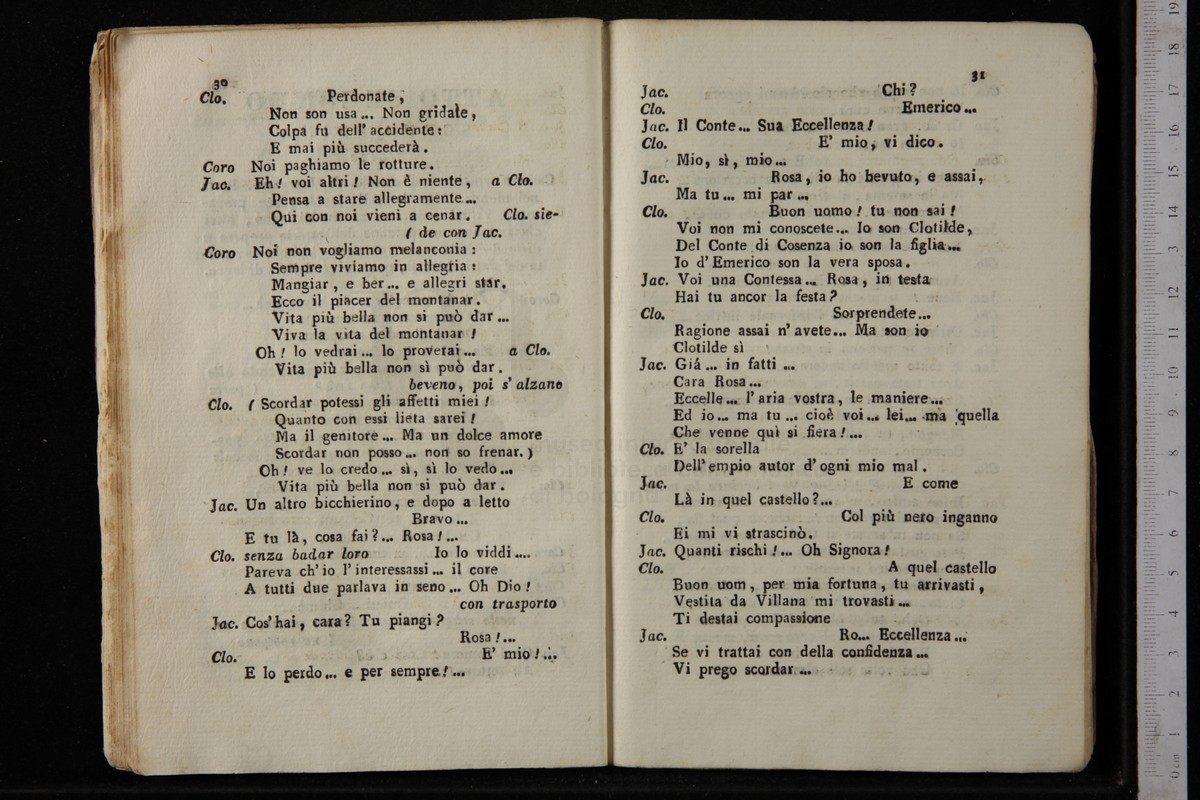 30
Clo. Perdonate,
Non son usa... Non gridate,
Colpa fu dell' accidente:
E mai più succederà.
Coro Noi paghiamo le rotture.
Jac. Eh! voi altri! Non è niente, a Clo.
Pensa a stare allegramente...
Qui con noi vieni a cenar. Clo. sie-
( de con Jac.
Coro Noi non vogliamo melanconia:
Sempre viviamo in allegria:
Mangiar, e ber... e allegri star.
Ecco il piacer del montanar.
Vita più bella non si può dar...
Viva la vita del montanar!
Oh! lo vedrai... lo proverai... a Clo.
Vita più bella non sì può dar.
beveno, poi s' alzano
Clo. ( Scordar potessi gli affetti miei!
Quanto con essi lieta sarei!
Ma il genitore... Ma un dolce amore
Scordar non posso... non so frenar.)
Oh! ve lo credo... sì, sì lo vedo...
Vita più bella non si può dar.
Jac. Un altro bicchierino, e dopo a letto
Bravo...
E tu là, cosa fai?... Rosa!...
Clo. senza badar loro Io lo viddi....
Pareva ch' io l' interessassi... il core
A tutti due parlava in seno... Oh Dio!
con trasporto
Jac. Cos' hai, cara? Tu piangi?
Rosa!...
Clo. E' mio!...
E lo perdo... e per sempre!...
31
Jac. Chi?
Clo. Emerico...
Jac. Il Conte... Sua Eccellenza!
Clo. E' mio, vi dico.
Mio, sì, mio...
Jac. Rosa, io ho bevuto, e assai,
Ma tu... mi par...
Clo. Buon uomo! tu non sai!
Voi non mi conoscete... Io son Clotilde,
Del Conte di Cosenza io son la figlia...
Io d' Emerico son la vera sposa.
Jac. Voi una Contessa... Rosa, in testa
Hai tu ancor la festa?
Clo. Sorprendete...
Ragione assai n' avete... Ma son io
Clotilde sì
Jac. Giá... in fatti...
Cara Rosa...
Eccelle... l' aria vostra, le maniere...
Ed io... ma tu... cioè voi... lei... ma quella
Che venne quì si fiera!...
Clo. E' la sorella
Dell' empio autor d' ogni mio mal.
Jac. E come
Là in quel castello?...
Clo. Col più nero inganno
Ei mi vi strascinò.
Jac. Quanti rischi!... Oh Signora!
Clo. A quel castello
Buon uom, per mia fortuna, tu arrivasti,
Vestita da Villana mi trovasti...
Ti destai compassione
Jac. Ro... Eccellenza...
Se vi trattai con della confidenza...
Vi prego scordar...